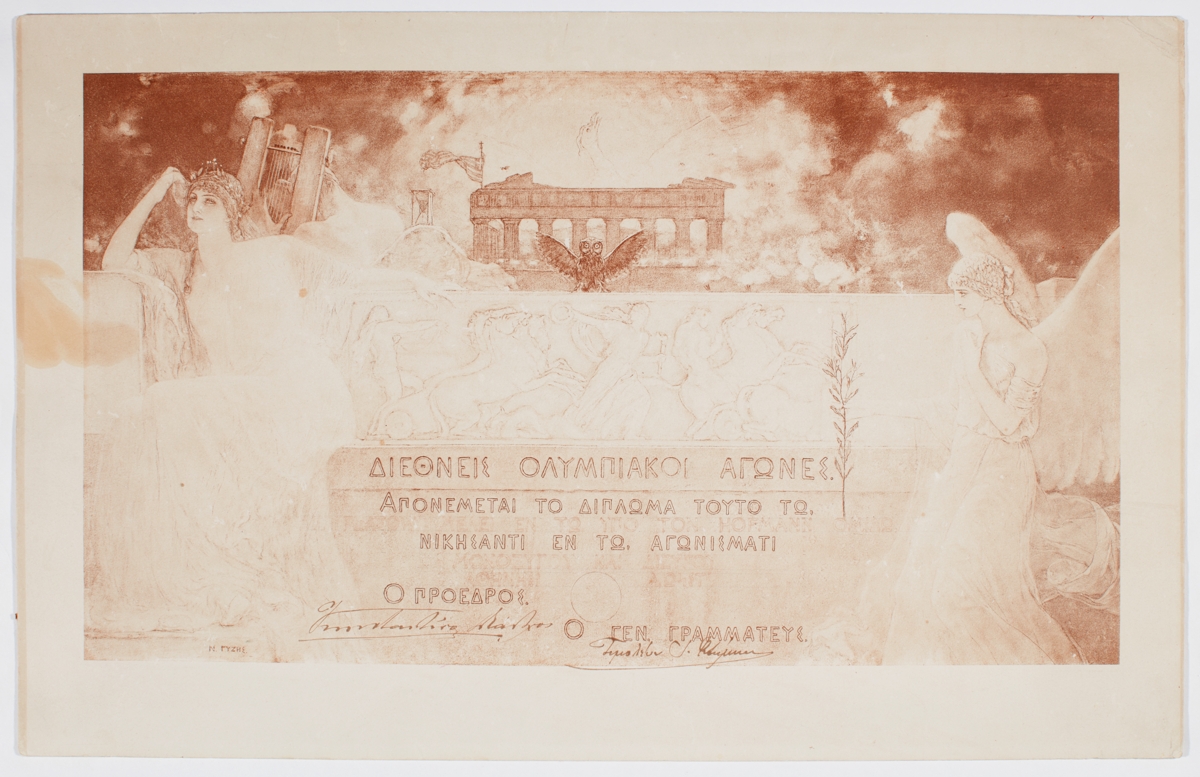 ΔΙΕΘΝΕΙΣ ΟΛΥΜΠΙΑΚΟΙ ΑΓΩΝΕΣ.
ΑΠΟΝΕΜΕΤΑΙ ΤΟ ΔΙΠΛΩΜΑ ΤΟΥΤΟ ΤΩ,
ΝΙΚΗΣΑΝΤΙ ΕΝ ΤΩ, ΑΓΩΝΙΣΜΑΤΙ
Ο ΠΡΟΕΔΡΟΣ.
Κωνσταντίνος
Ο ΓΕΝ. ΓΡΑΜΜΑΤΕΥΣ.
Ν. ΓΥΖΗΣ